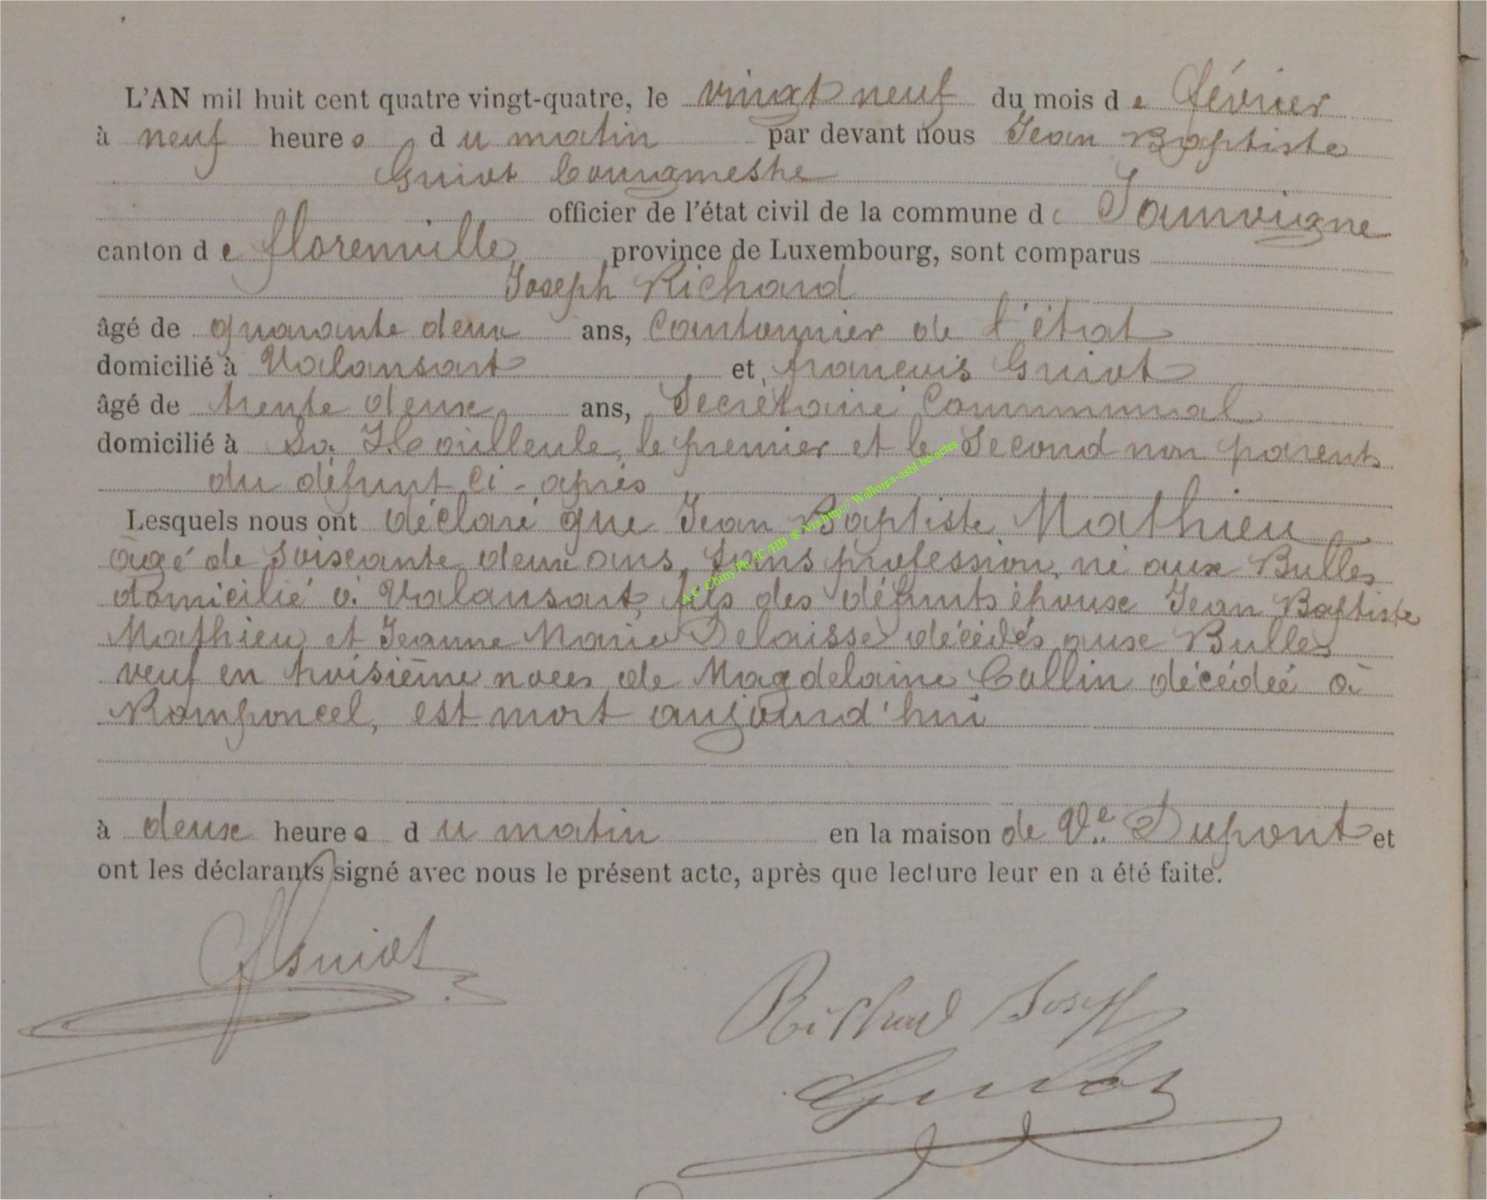 L'AN mil huit cent quatre vingt-quatre, le vingt neuf du mois de février
à neuf heures du matin par devant nous Jean Baptiste
Guiot bourgmestre
officier de l'état civil de la commune de Jamoigne
canton de florenville province de Luxembourg, sont comparus
Joseph Richard
âgé de quarante deux ans, Cantonnier de l'état
domicilié à Valansart et françois Guiot
âgé de trente deux ans, Secrétaire Communal
domicilié à La Houlleule, le premier et le Second non parents
du défunt ci-après
Lesquels nous ont déclaré que Jean Baptiste Mathieu
âgé de soixante deux ans, sans profession, né aux Bulles
domicilié à Valansart, fils des défunts époux Jean Baptiste
Mathieu et Jeanne Marie Delaisse décédés aux Bulles
veuf en troisième noces de Magdelaine Collin décédée à
Romponcel, est mort aujourd'hui
à deux heures du matin en la maison de Ve Dupont et
ont les déclarants signé avec nous le présent acte, après que lecture leur en a été faite.
Guiot
Richard Joseph
Guiot